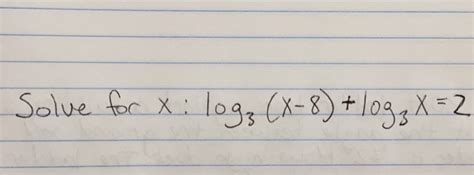 Solve for x : log₃ (x-8) + log₃ x = 2